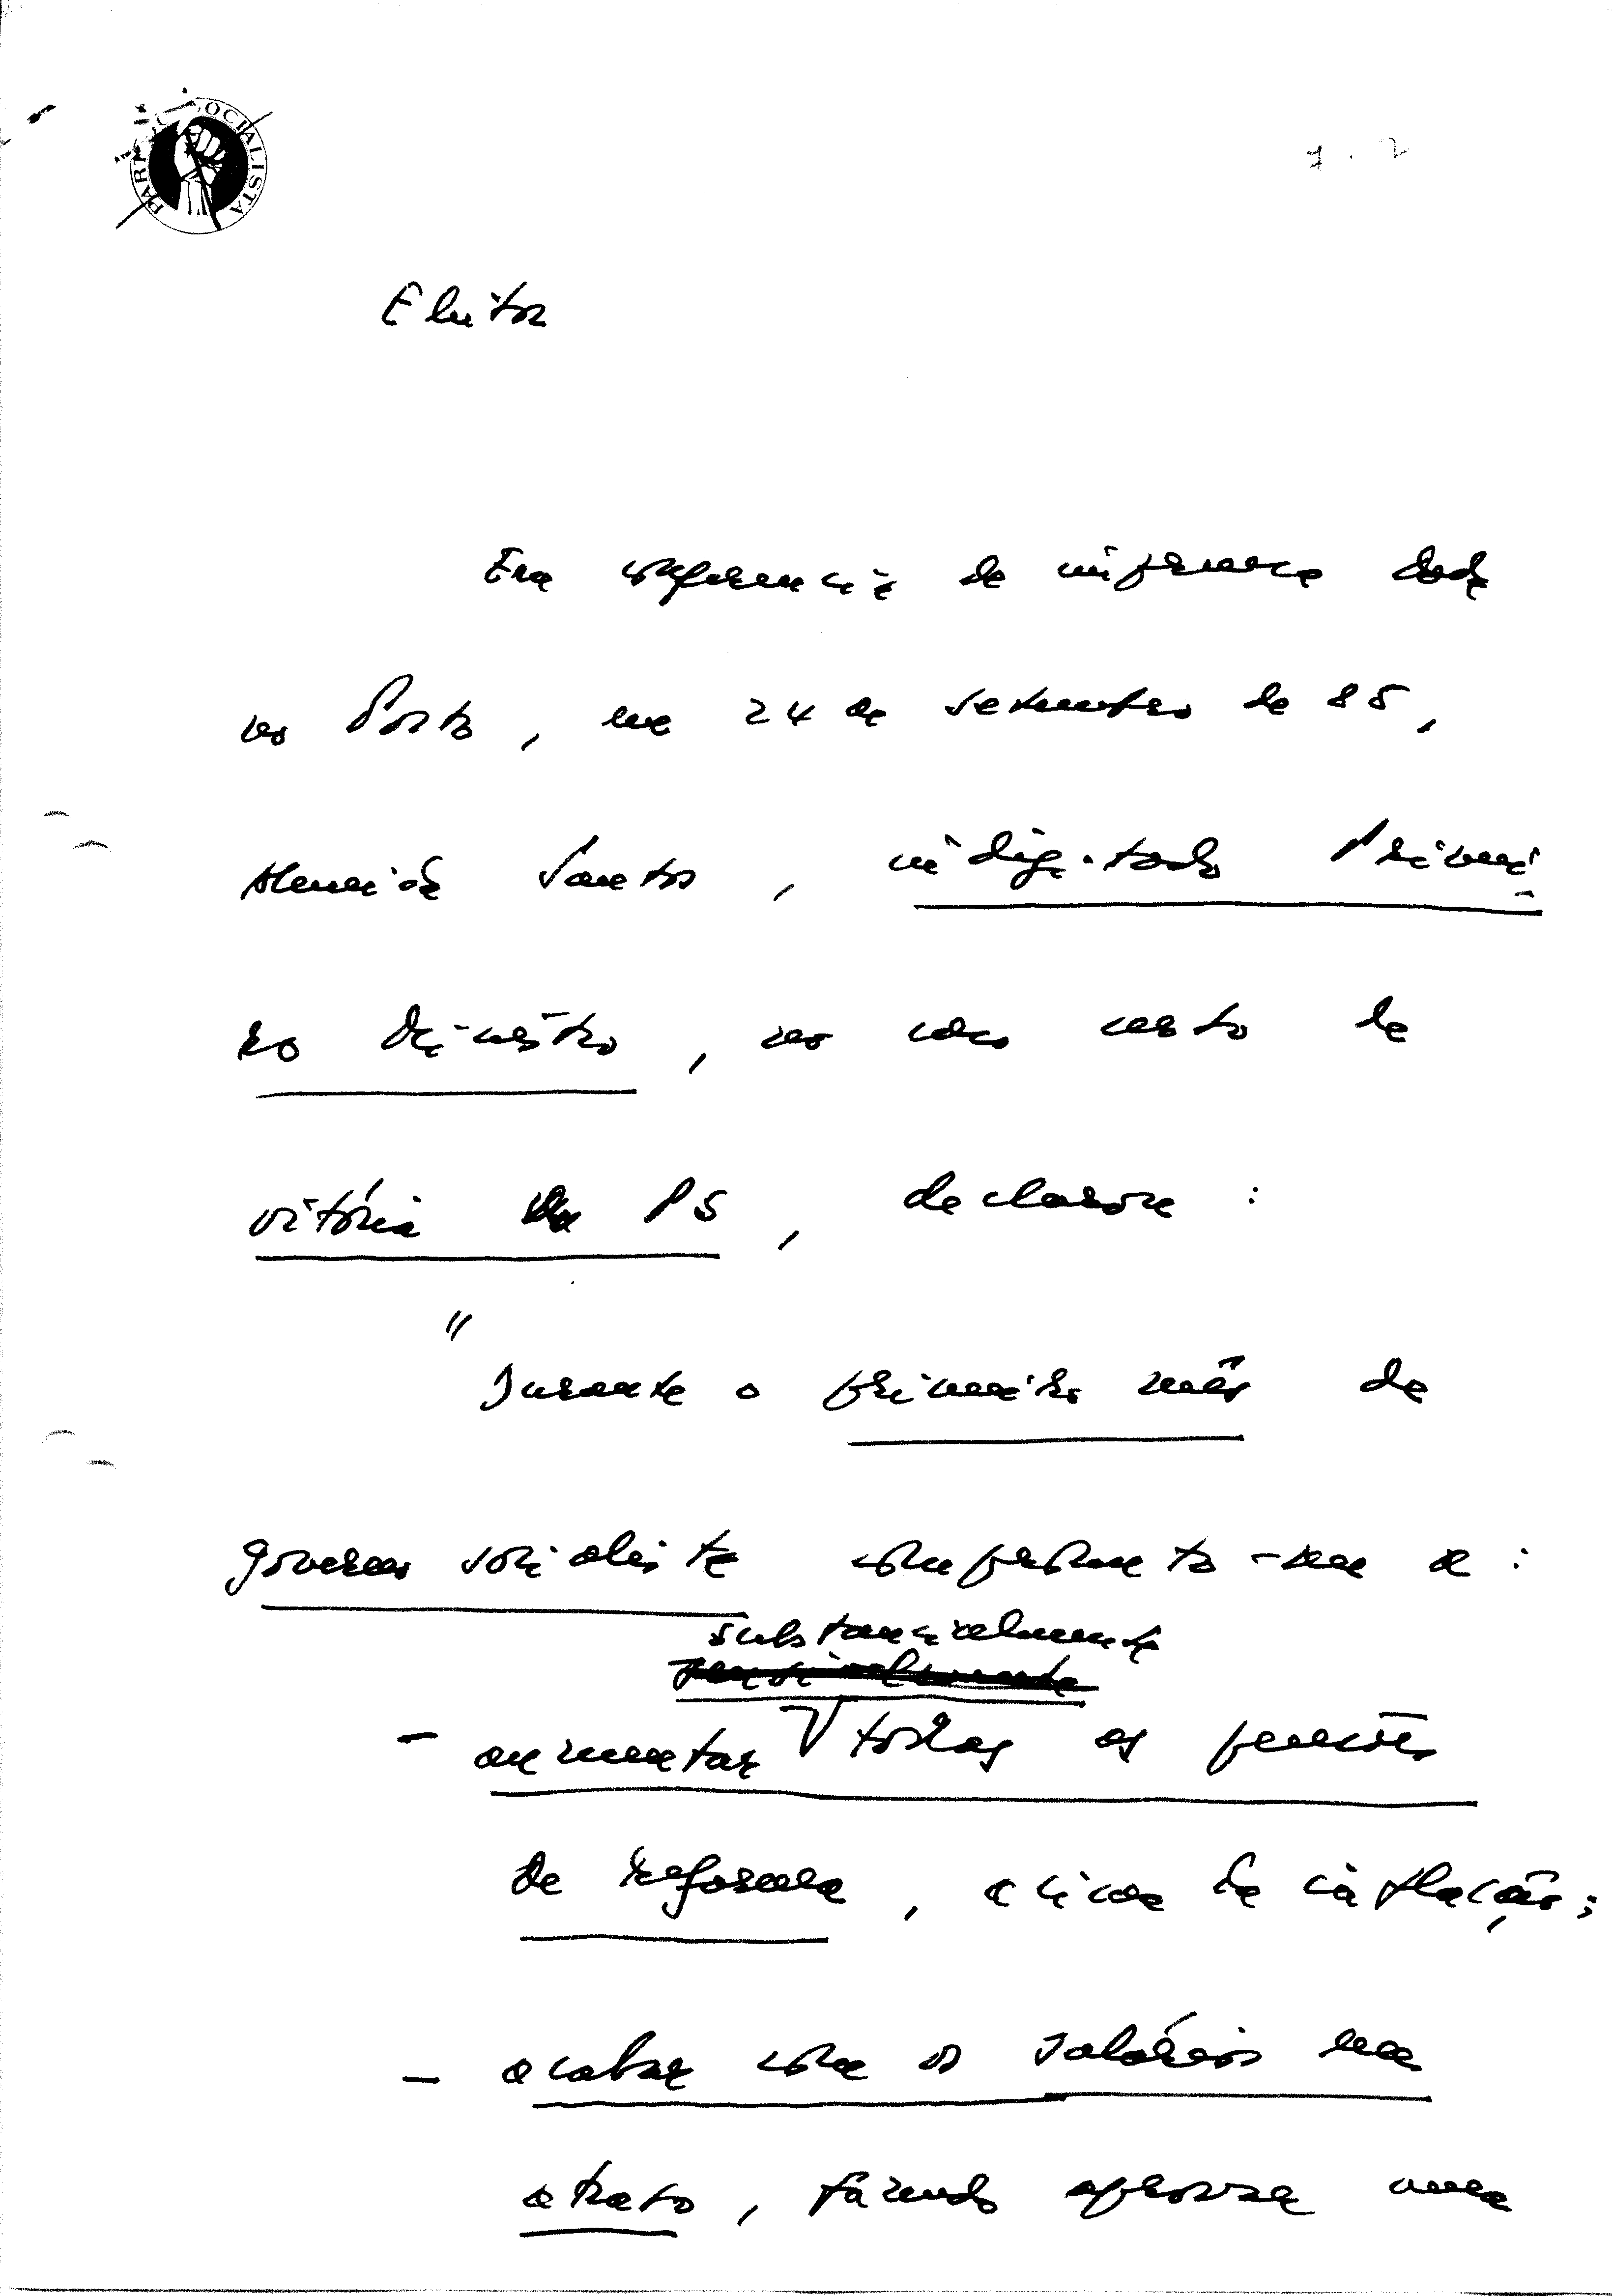 PARTIDO SOCIALISTA
Eleitor
Em conferência de imprensa dada
no Porto, em 24 de Setembro de 85,
Almeida Santos, indigitado Primei-
ro Ministro, no caso de
vitória do PS, declarou:
"
Durante o primeiro mês de
governo socialista comprometo-me a:
substancialmente
- aumentar V todas as pensões
de reforma, acima da inflação;
- acabar com os salários em
atraso, fazendo aprovar uma